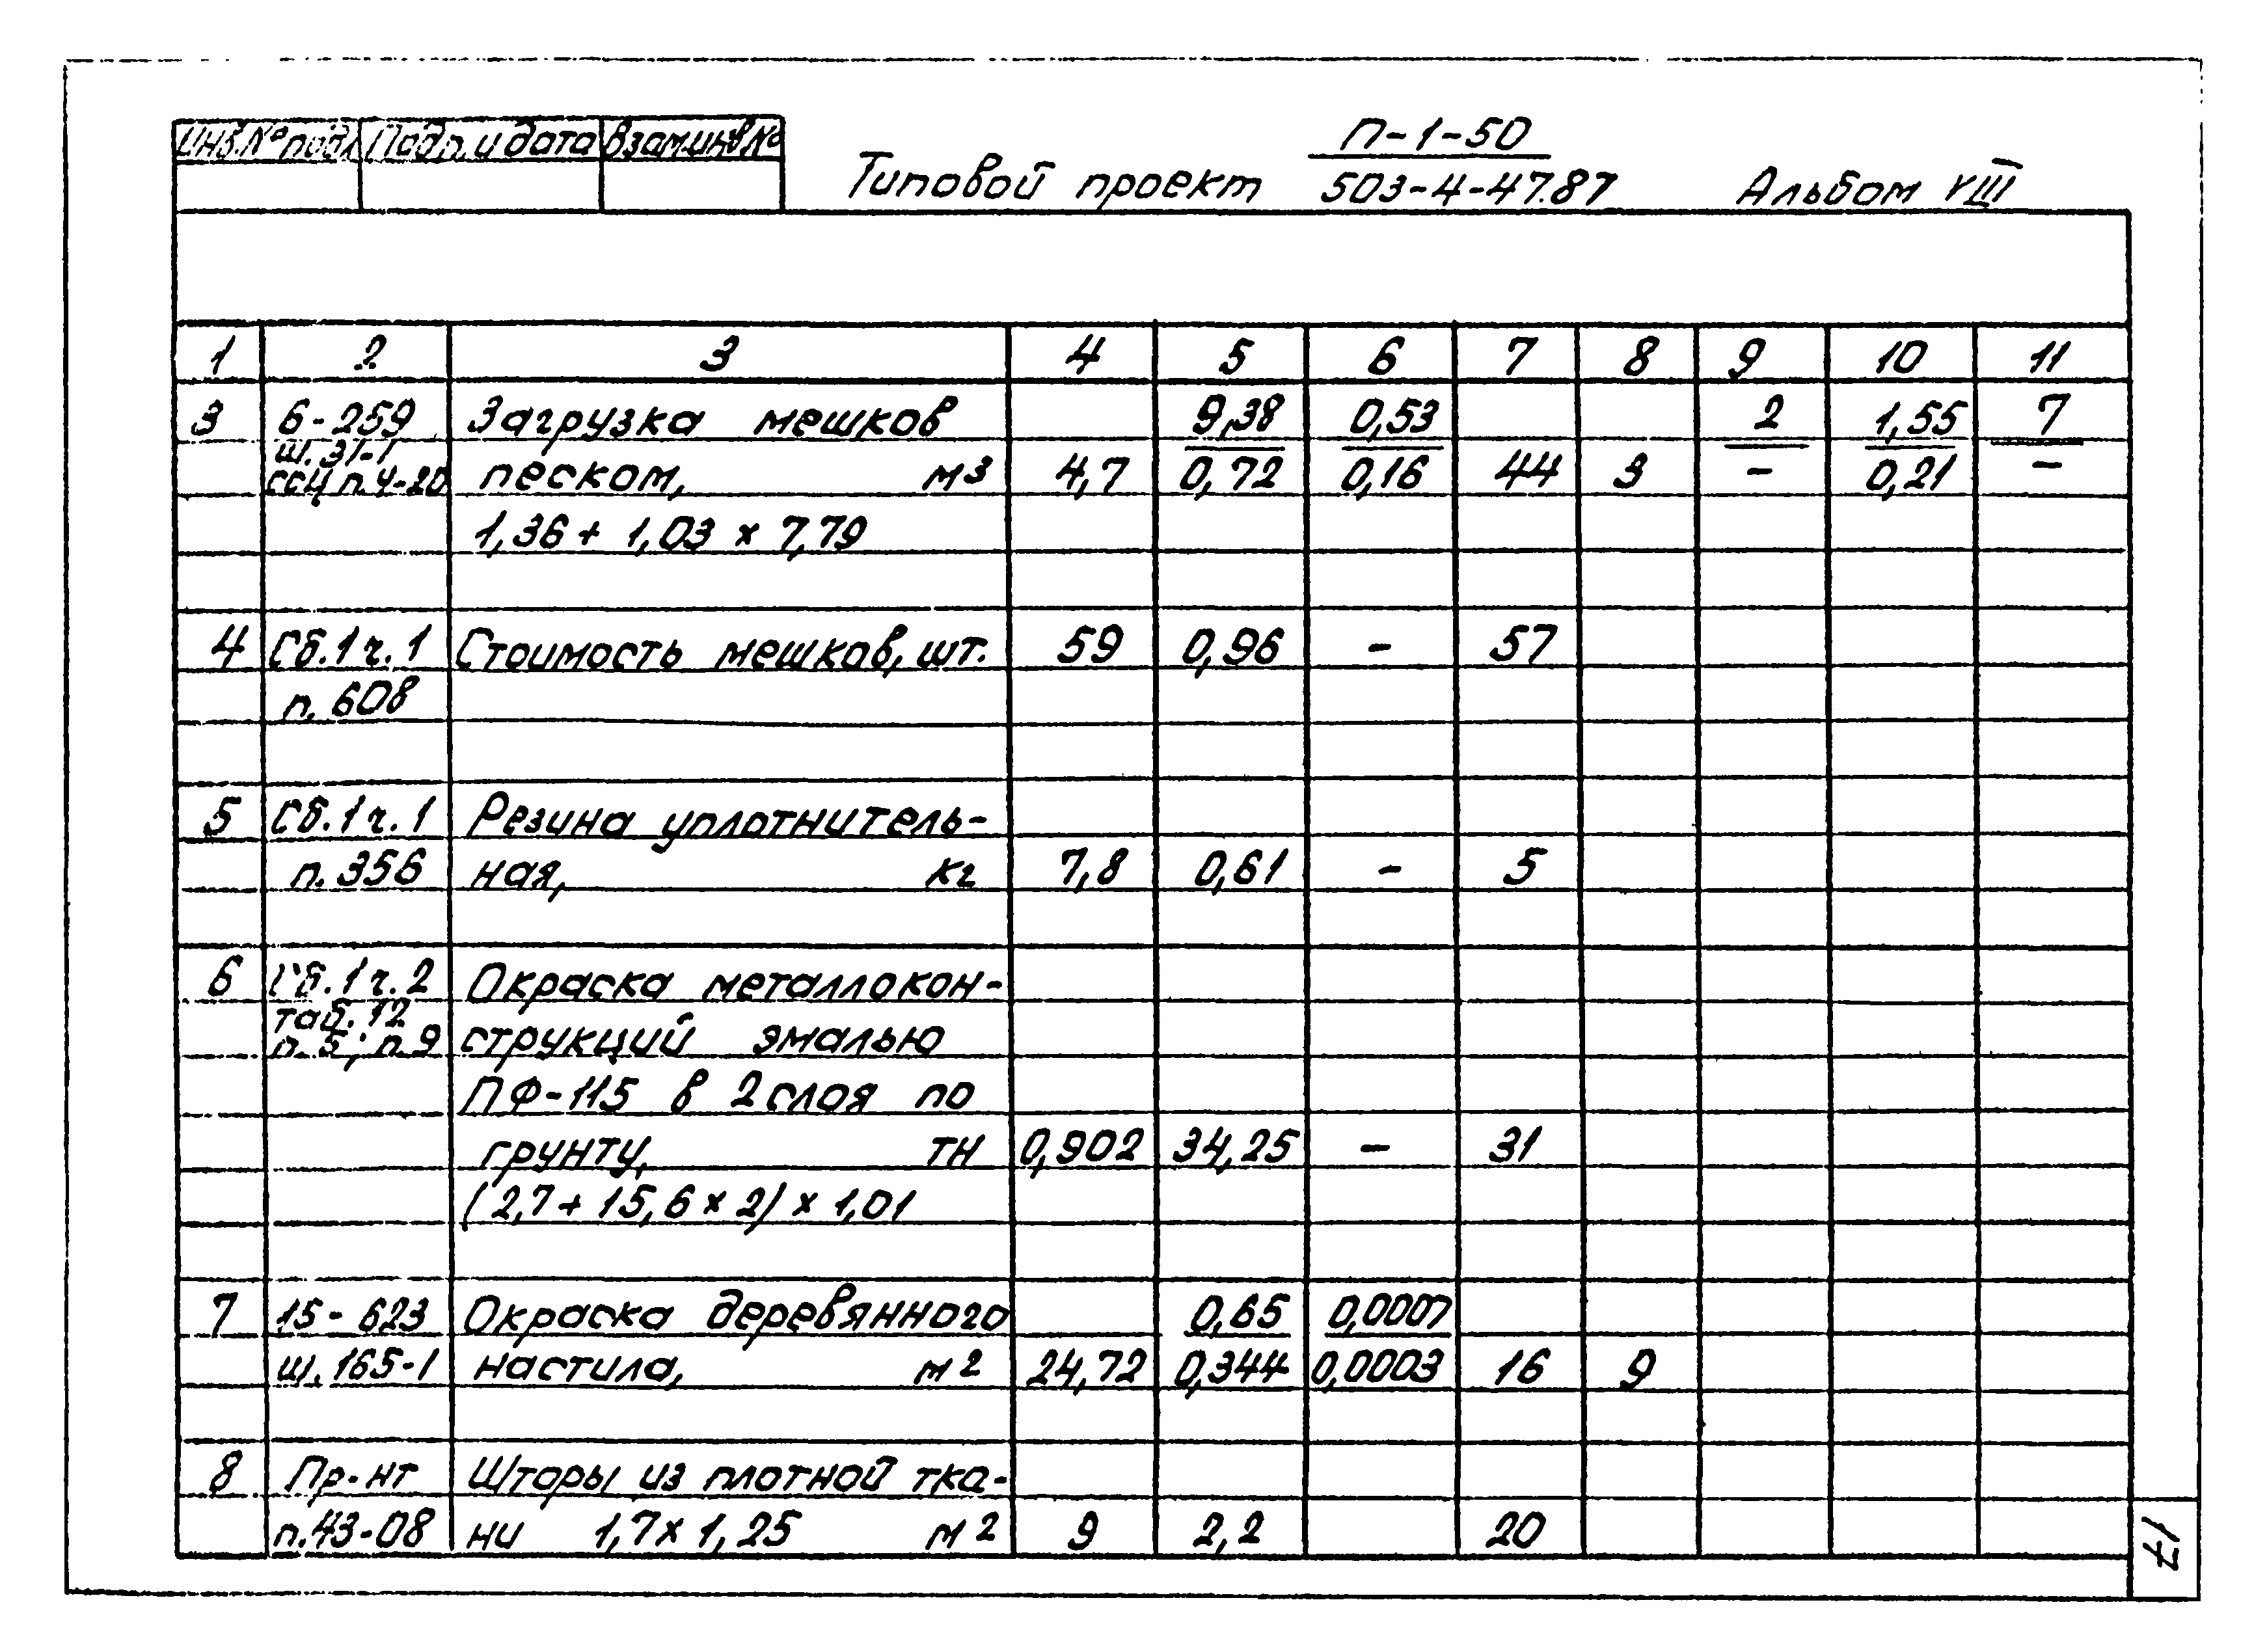 Инв.№ подл Подп. и дата Взам.инв№
П-1-50
Типовой проект 503-4-47.87 Альбом VIII
1 2 3 4 5 6 7 8 9 10 11
3 6-259 Загрузка мешков 9,38 0,53 2 1,55 7
ш. 31-1
ссц п.4-20 песком, м3 4,7 0,72 0,16 44 3 - 0,21 -
1,36 + 1,03 x 7,79
4 Сб.1 ч. 1 Стоимость мешков, шт. 59 0,96 - 57
п. 608
5 Сб.1 ч. 1 Резина уплотнитель-
п. 356 ная, кг 7,8 0,61 - 5
6 Сб.1 ч. 2 Окраска металлокон-
таб. 12
п. 5; п. 9 струкций эмалью
ПФ-115 в 2 слоя по
грунту, тн 0,902 34,25 - 31
(2,7 + 15,6 x 2) x 1,01
7 15-623 Окраска деревянного 0,65 0,0007
ш. 165-1 настила, м2 24,72 0,344 0,0003 16 9
8 Пр-нт Шторы из плотной тка-
п.43-08 ни 1,7 x 1,25 м2 9 2,2 20
17